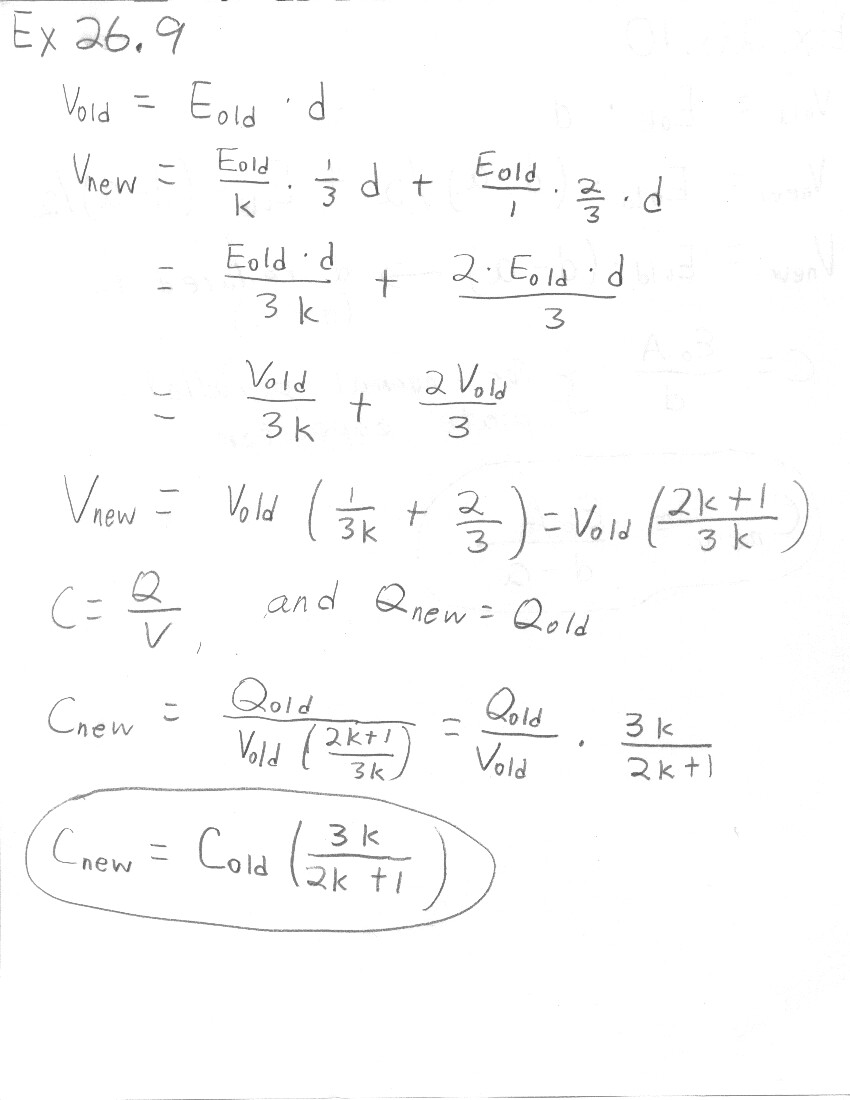 Ex 26.9
Vold = Eold · d
Vnew = Eold/k · 1/3 d + Eold/1 · 2/3 · d
= Eold · d/3k + 2 · Eold · d/3
= Vold/3k + 2Vold/3
Vnew = Vold (1/3k + 2/3) = Vold (2k+1/3k)
C = Q/V, and Qnew = Qold
Cnew = Qold/Vold (2k+1/3k) = Qold/Vold · 3k/2k+1
Cnew = Cold (3k/2k+1)